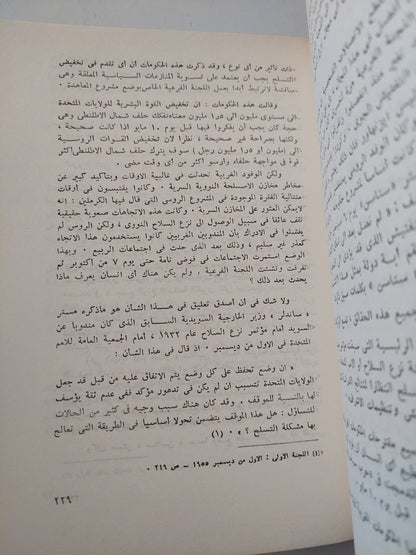 ذات تأثير من أى نوع ) وقد ذكرت هذه الحكومات أن أى تقدم فى تخفيض
التسلح يجب أن يعتمد على تسوية المنازعات السياسية المعلقة وهى
مناقشة لاترتبط أبدا بعمل اللجنة الفرعية الخاص بوضع مشروع المعاهدة .
وقالت هذه الحكومات : ان تخفيض القوة البشرية للولايات المتحدة
الى مستوى مليون الى ٥ر١ مليون معناه تفكك حلف شمال الاطلنطى وهى
حجة كان يجب أن يفكروا فيها قبل يوم ١٠ مايو اذا كانت صحيحة ،
ولكنها بصراحة غير صحيحة ، نظرا لان تخفيض القوات الروسية
الى ( مليون أو ٥ر١ مليون رجل ) سوف يترك حلف شمال الاطلنطى أكثر
قوة فى مواجهة حلفاء وارسو أكثر من أى وقت مضى .
ولكن الوفود الغربية تحدثت فى غالبية الاوقات وبتأكيد كبير عن
مخاطر مخازن الاسلحة النووية السرية . وكانوا يقتبسون فى أوقات
متتالية الفقرة الموجودة فى المشروع الروسى التى قال فيها الكرملين : انه
لايمكن العثور على المخازن السرية . وكانت هذه الاتجاهات صعوبة حقيقية
تقف عائقا فى سبيل الوصول الى نزع السلاح النووى ، ولكن الروس لم
يفشلوا فى الادراك بأن المندوبين الغربيين كانوا يستخدمون هذا الاتجاه
كعذر غير سليم ، وذلك بعد الذى حدث فى اجتماعات الربيع . وبهذا
الوضع استمرت الاجتماعات فى فوضى تامة حتى يوم ٧ من أكتوبر ثم
تفرقت وتشتت اللجنة الفرعية . ولم يكن هناك أى انسان يعرف ماذا
يحدث بعد ذلك ؟
ولا شك فى أن أصدق تعليق فى هذا الشأن هو ماذكره مستر
« ساندلر » وزير الخارجية السويدية السابق الذى كان مندوبا عن
السويد امام مؤتمر نزع السلاح عام ١٩٣٢ ، امام الجمعية العامة للامم
المتحدة فى الاول من ديسمبر . اذ قال فى هذا الشأن :
« ان وضع تحفظ على كل وضع يتم الاتفاق عليه من قبل قد جعل
الولايات المتحدة تتسبب ان لم يكن فى تدهور مؤكد ففى عدم ثقة يؤسف
لها بالنسبة للموقف . وقد كان هناك سبب وجيه فى كثير من الحالات
للتساؤل : هل هذا الموقف يتضمن تحولا أساسيا فى الطريقة التى تعالج
بها مشكلة التسلح ؟ » . (١)
(١) اللجنة الاولى : الاول من ديسمبر ١٦٥٥ — ص ٢١٦ .
٢٣٩